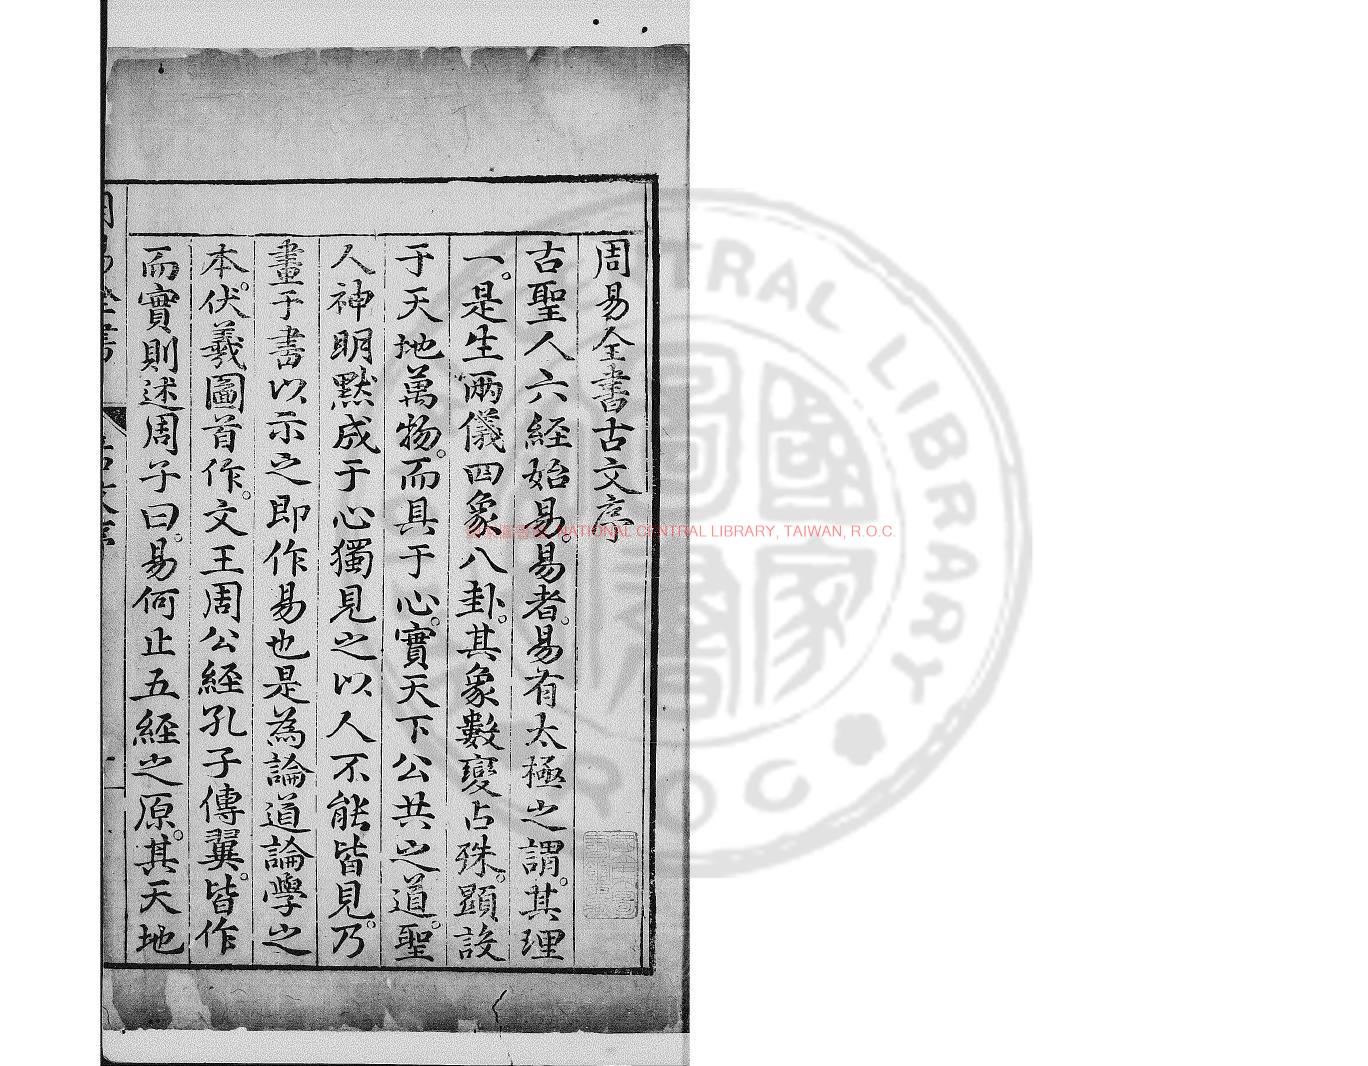 周易全書古文序
古聖人六經始易。易者。易有太極之謂。其理
一。是生兩儀四象八卦。其象數變占殊。顯設
于天地萬物。而具于心。實天下公共之道。聖
人神明默成于心獨見之以人不能皆見。乃
畫于書以示之即作易也是為論道論學之
本。伏羲圖首作。文王周公經孔子傳翼。皆作
而實則述周子曰。易何止五經之原。其天地
NATIONAL CENTRAL LIBRARY, TAIWAN, R.O.C.